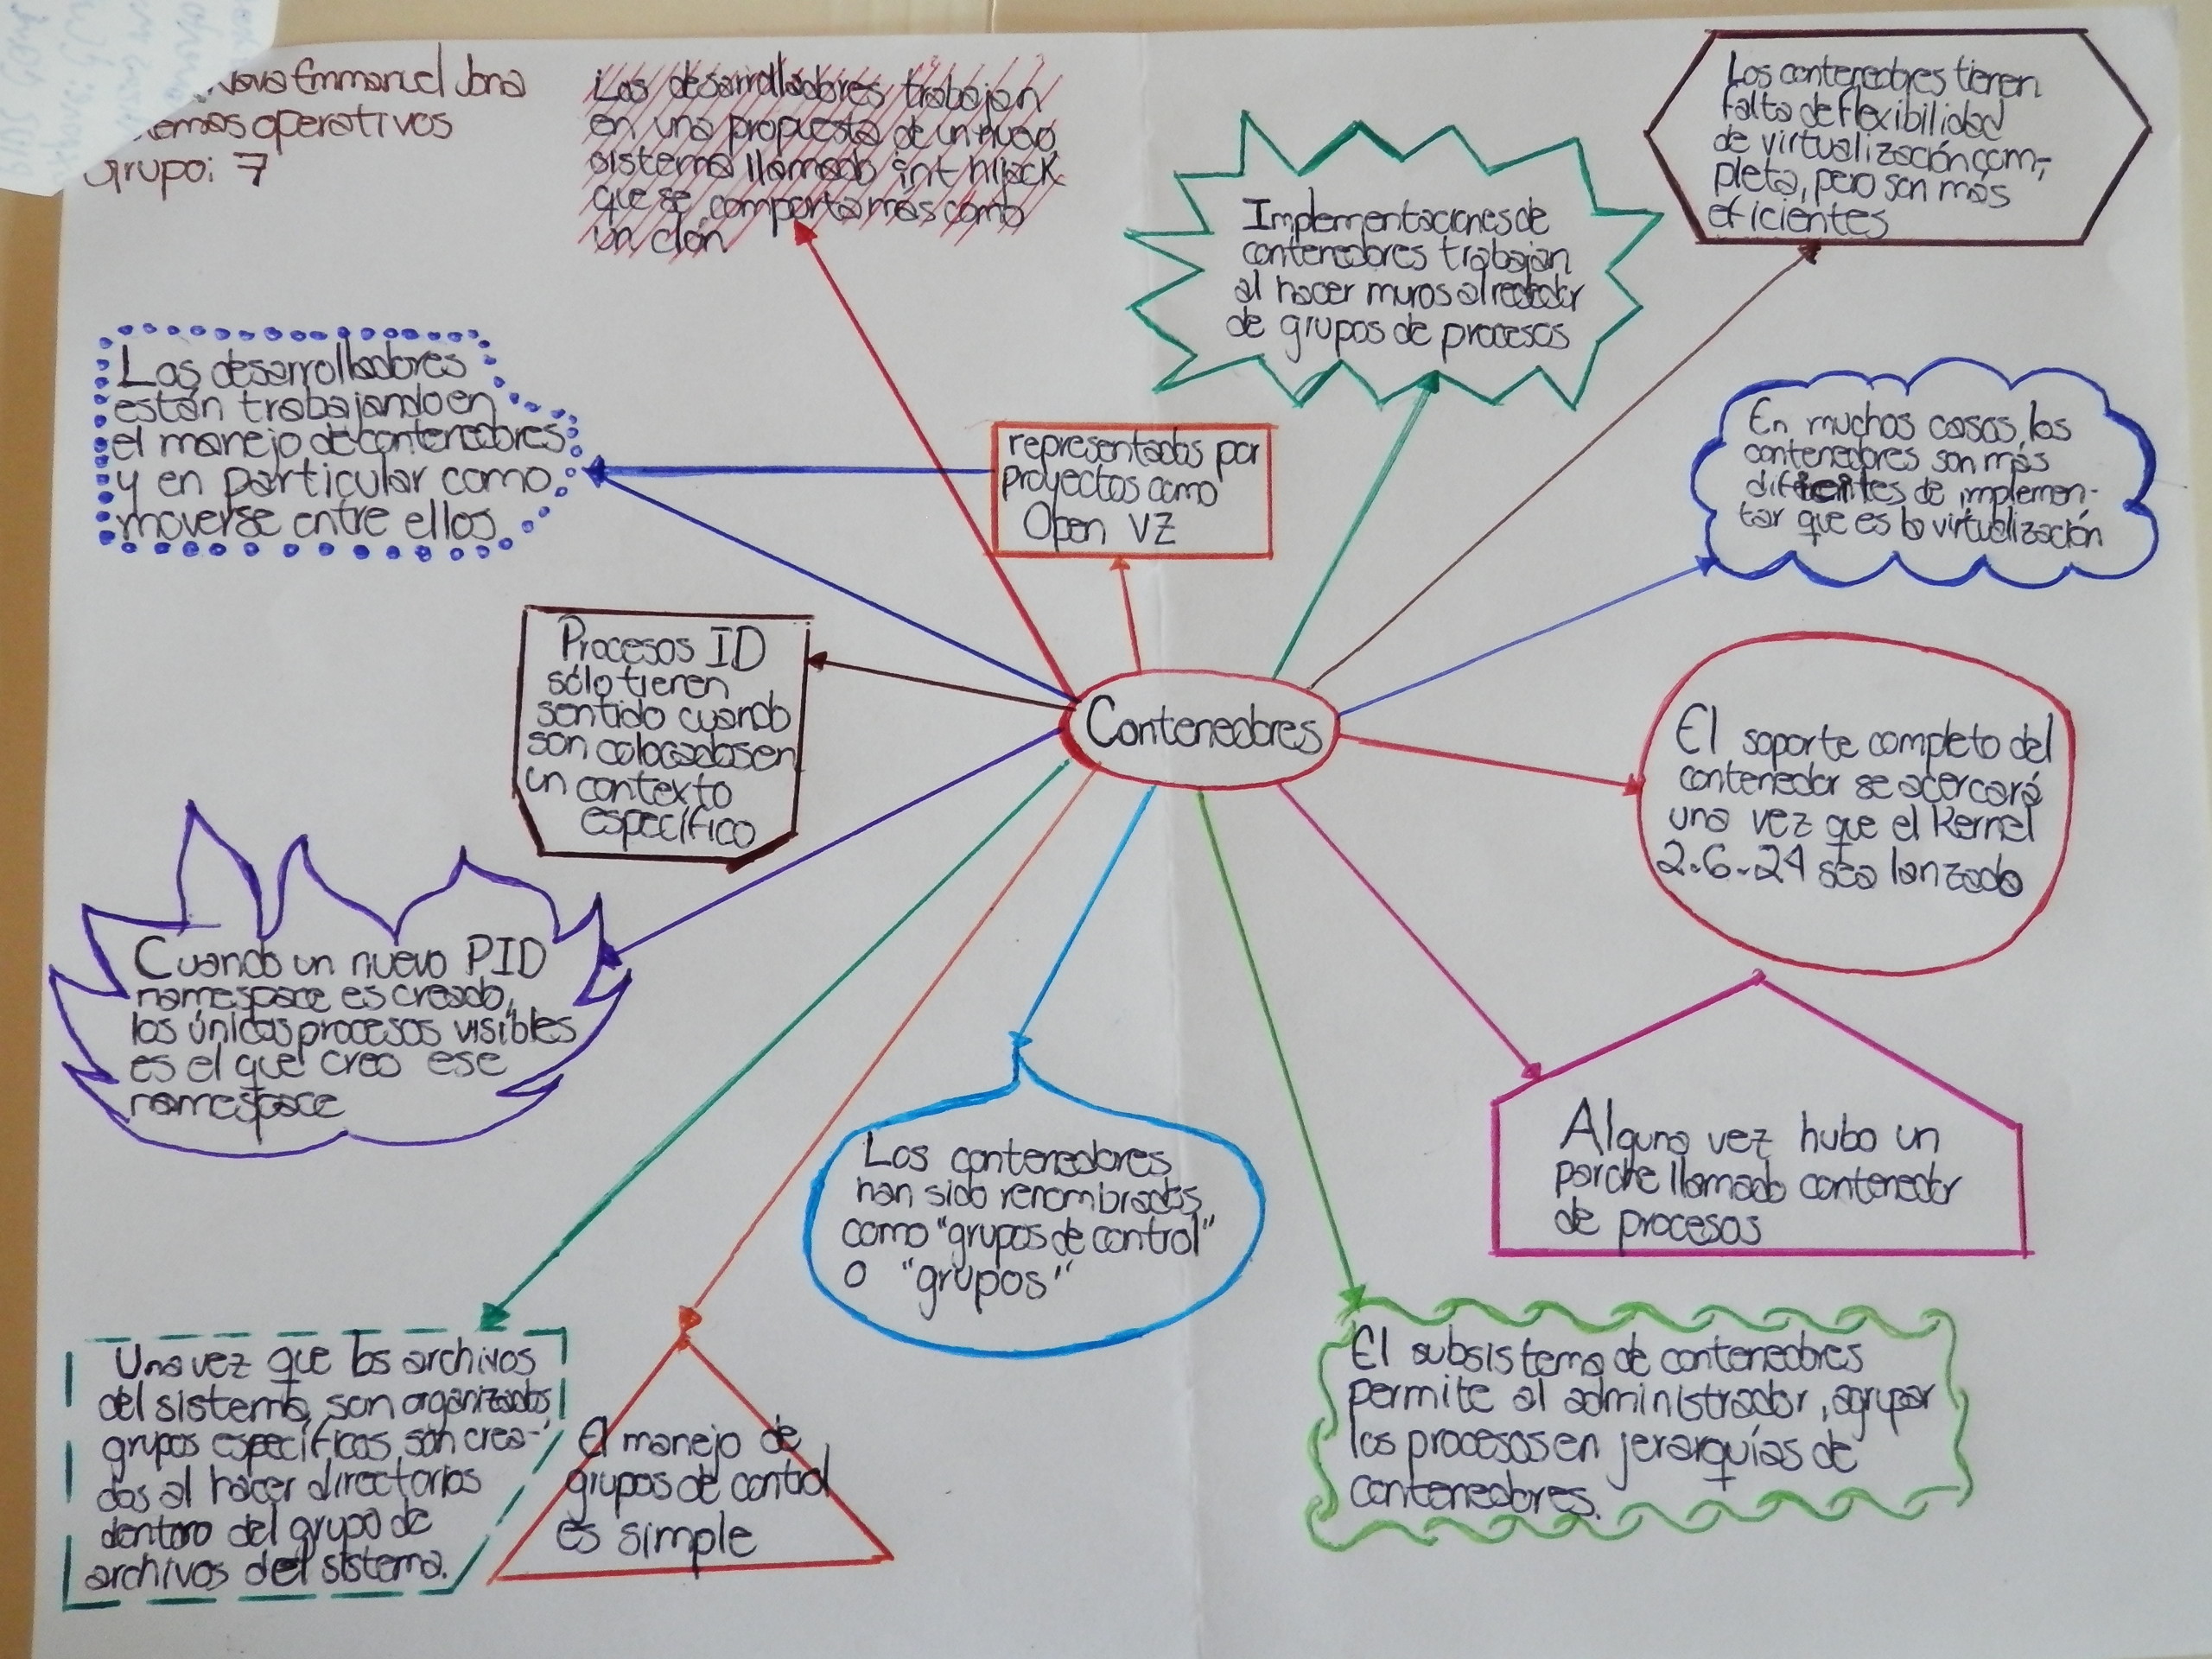 Nava Emmanuel Jona
temas operativos
Grupo: 7
Los desarrolladores trabajan
en una propuesta de un nuevo
sistema llamado int hijack
que se comporta más como
un clón
Implementaciones de
contenedores trabajan
al hacer muros alrededor
de grupos de procesos
Los contenedores tienen
falta de flexibilidad
de virtualización com-
pleta, pero son más
eficientes
Los desarrolladores
están trabajando en
el manejo de contenedores
y en particular como
moverse entre ellos
representados por
proyectos como
Open VZ
En muchos casos, los
contenedores son más
de implemen-
tar que es la virtualización
Procesos ID
sólo tienen
sentido cuando
son colocados en
un contexto
específico
Contenedores
El soporte completo del
contenedor se acercará
una vez que el Kernel
2.6.24 sea lanzado
Cuando un nuevo PID
namespace es creado,
los únicos procesos visibles
es el que creo ese
namespace
Los contenedores
han sido renombrados
como "grupos de control"
o "grupos"
Alguna vez hubo un
parche llamado contenedor
de procesos
Una vez que los archivos
del sistema son organizados
grupos específicos son crea-
dos al hacer directorios
dentro del grupo de
archivos del sistema.
El manejo de
grupos de control
es simple
El subsistema de contenedores
permite al administrador, agrupar
los procesos en jerarquías de
contenedores.